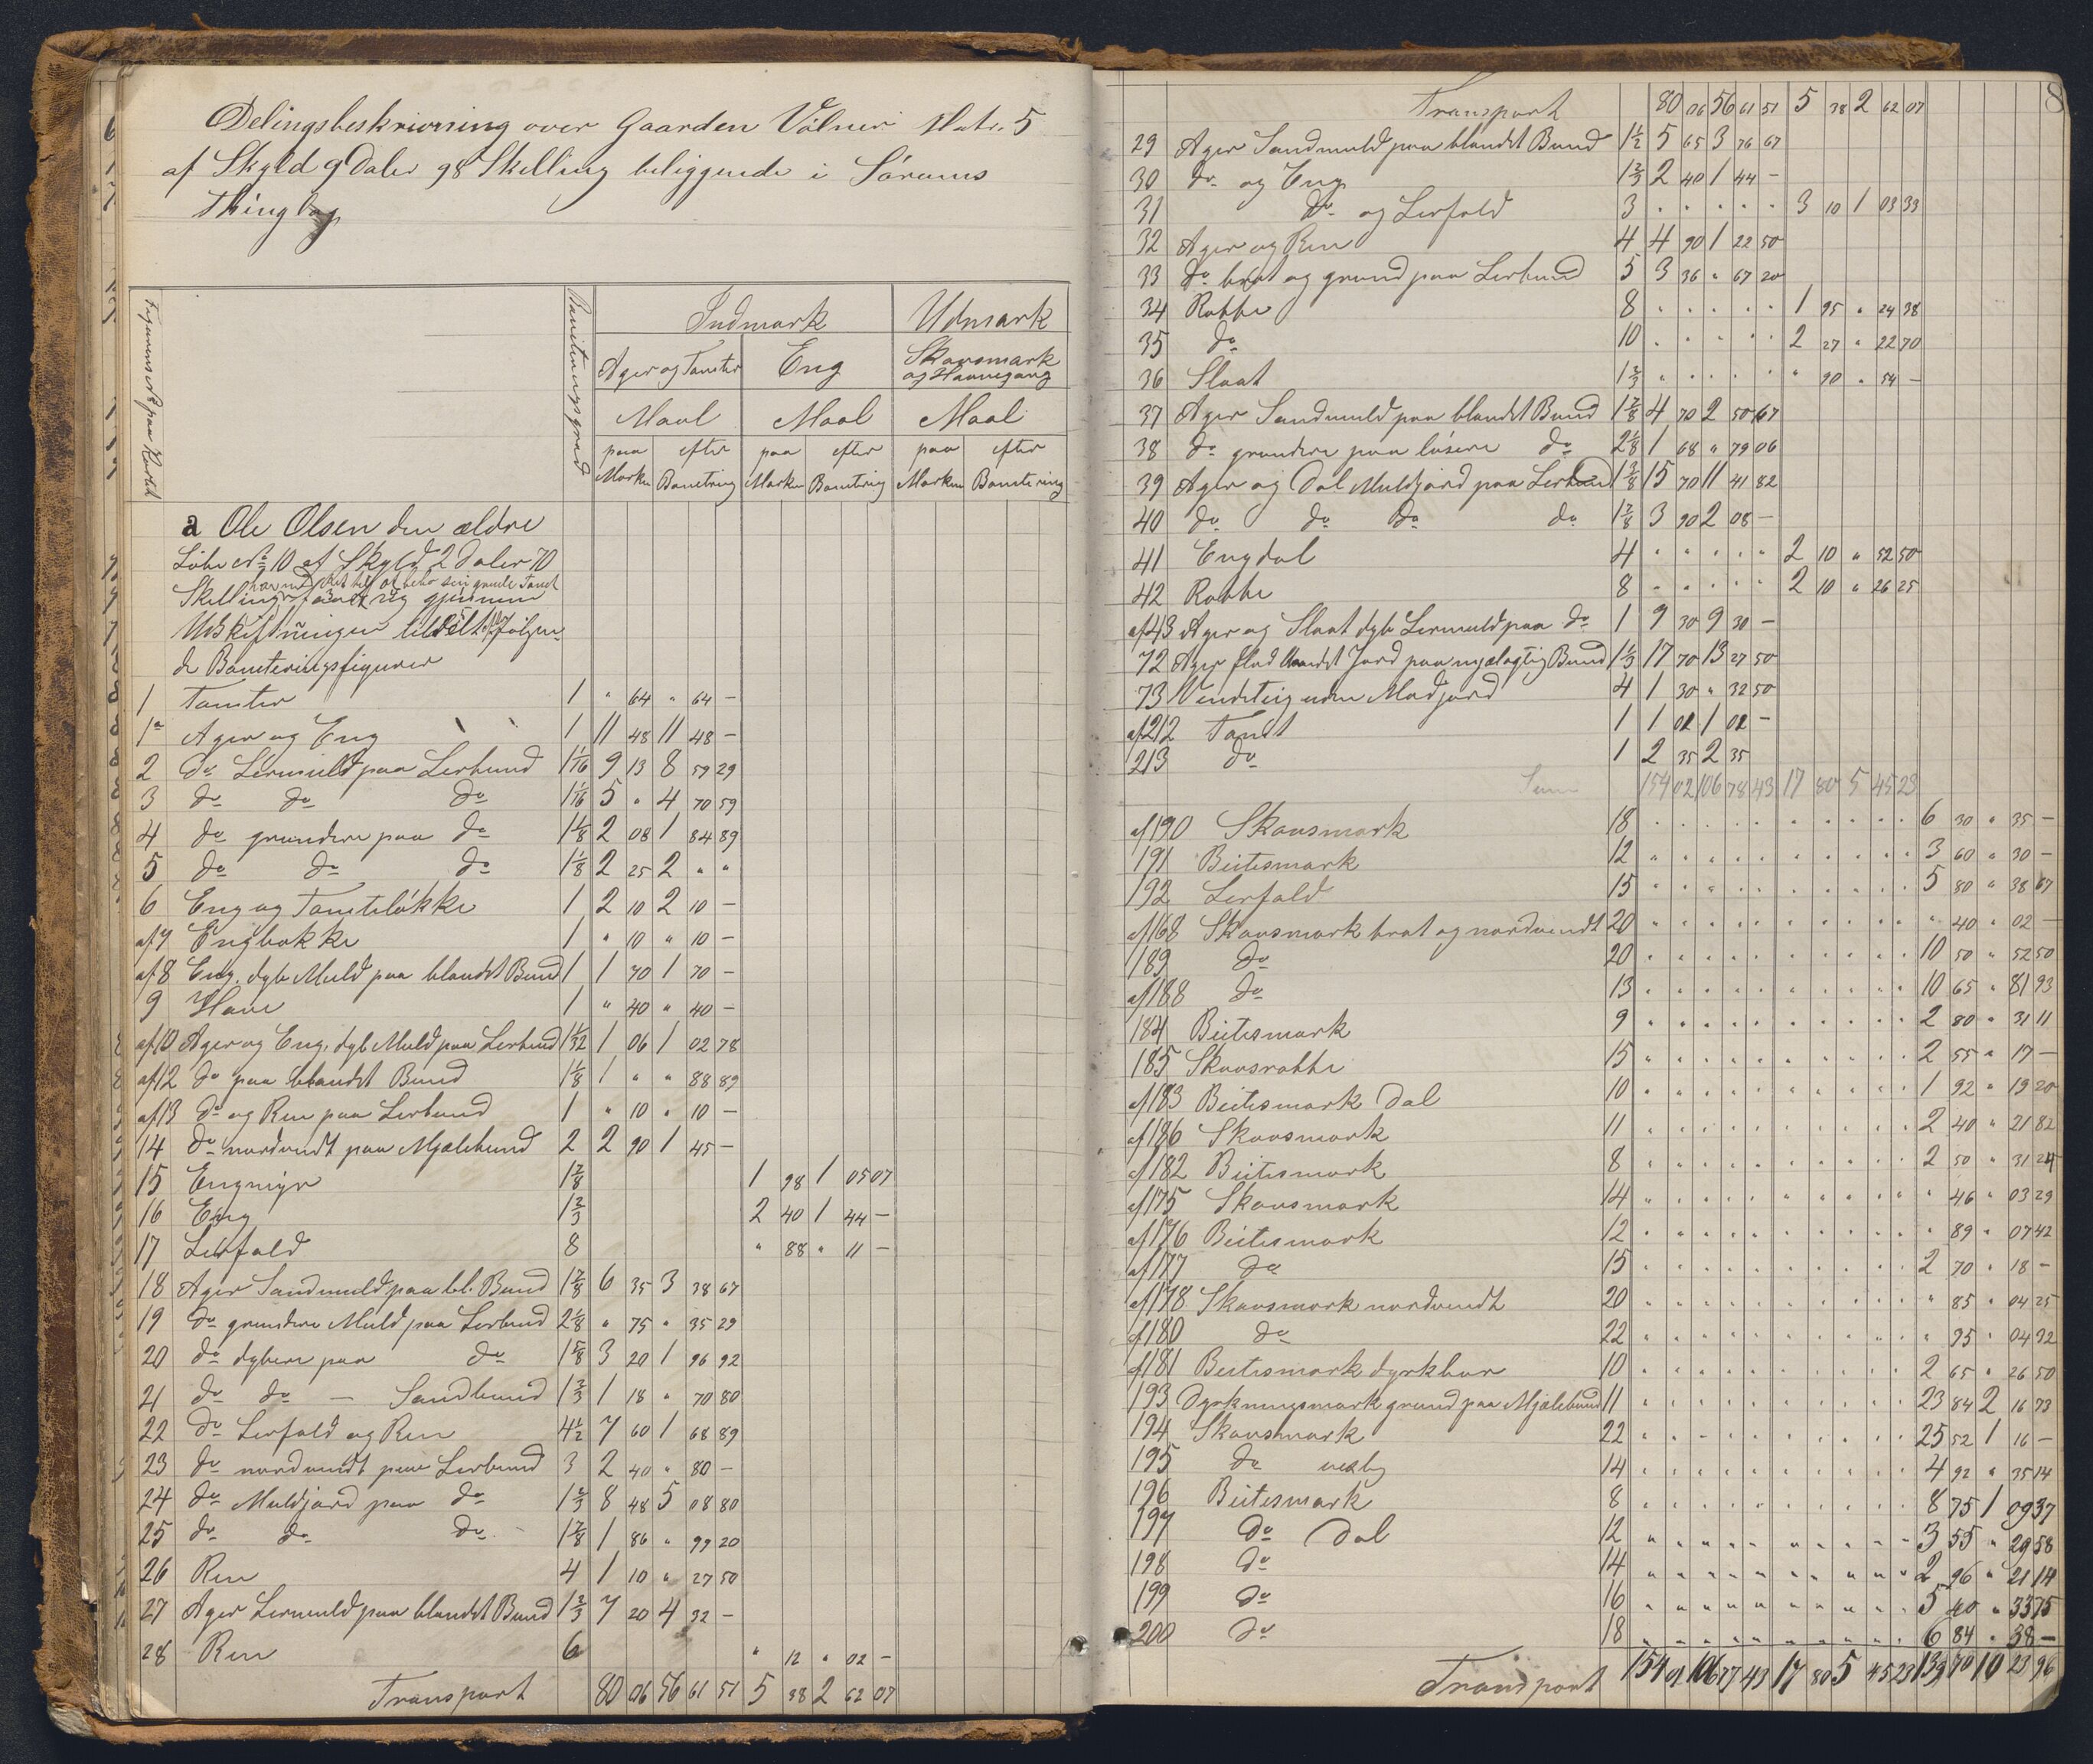 Delingsbeskrivning over Gaarden Völner Matr. 5
af Skyld 9 Daler 98 Skelling beliggende i Sörums
Thinglag
Figurens No paa Kartet
Baniteringsgrad
Indmark Udmark
Ager og Tomter Eng Skovsmark og Havnegang
Maal Maal Maal
paa Marken efter Banitring paa Marken efter Banitring paa Marken efter Banitering
a Ole Olsen den ældre
Löbe No 10 af Skyld 2 Daler 70
Skelling
Udskiftningen tildelt följen-
de Baniteringsfigurer
1 Tomter 1 " 64 " 64 —
1a Ager og Eng 1 11 48 11 48 —
2 do Lermuld paa Lerbund 1 1/16 9 13 8 59 29
3 do do do 1 1/16 5 " 4 70 59
4 do grundere paa do 1 1/8 2 08 1 84 89
5 do do do 1 1/8 2 25 2 " "
6 Eng og Tomtelökke 1 2 10 2 10 —
af 7 Engbakke 1 " 10 " 10 —
af 8 Eng, dyb Muld paa blandet Bund 1 1 70 1 70 —
9 Have 1 " 40 " 40 —
af 10 Ager og Eng, dyb Muld paa Lerbund 1 1/32 1 06 1 02 78
af 12 do paa blandet Bund 1 1/8 1 " " 88 89
af 13 do og Ren paa Lerbund 1 " 10 " 10 —
14 do nordvendt paa Mjælebund 2 2 90 1 45 —
15 Engmyr 1 7/8 1 98 1 05 07
16 Eng 1 2/3 2 40 1 44 —
17 Lerfald 8 " 88 " 11 —
18 Ager Sandmuld paa bl. Bund 1 7/8 6 35 3 38 67
19 do grundere Muld paa Lerbund 2 1/8 " 75 " 35 29
20 do dybere paa do 1 5/8 3 20 1 96 92
21 do do — Sandbund 1 2/3 1 18 " 70 80
22 do Lerfald og Ren 4 1/2 7 60 1 68 89
23 do nordvendt paa Lerbund 3 2 40 " 80 —
24 do Muldjord paa do 1 2/3 8 48 5 08 80
25 do do do 1 7/8 1 86 " 99 20
26 Ren 4 1 10 " 27 50
27 Ager Lermuld paa blandet Bund 1 2/3 7 20 4 32 —
28 Ren 6 " 12 " 02 —
Transport 80 06 56 61 51 5 38 2 62 07
8
Transport 80 06 56 61 51 5 38 2 62 07
29 Ager Sandmuld paa blandet Bund 1 1/2 5 65 3 76 67
30 do og Eng 1 2/3 2 40 1 44 —
31 do og Lerfald 3 " " " " " 3 10 1 03 33
32 Ager og Ren 4 4 90 1 22 50
33 do brat og grund paa Lerbund 5 3 36 " 67 20
34 Rabbe 8 " " " " " 1 95 " 24 38
35 do 10 " " " " " 2 27 " 22 70
36 Slaat 1 2/3 " " " " " " 90 " 54 —
37 Ager Sandmuld paa blandet Bund 1 7/8 4 70 2 50 67
38 do grundere paa lösere do 2 1/8 1 68 " 79 06
39 Ager og Dal Muldjord paa Lerbund 1 3/8 15 70 11 41 82
40 do do do do 1 7/8 3 90 2 08 —
41 Engdal 4 " " " " " 2 10 " 52 50
42 Rabbe 8 " " " " " 2 10 " 26 25
af 43 Ager og Slaat dyb Lermuld paa do 1 9 30 9 30 —
72 Ager flad blandet Jord paa mjælagtig Bund 1 1/3 17 70 13 27 50
73 Vendeteig uden Madjord 4 1 30 " 32 50
af 212 Tomt 1 1 02 1 02 —
213 do 1 2 35 2 35
Sum 154 02 106 78 43 17 80 5 45 23
af 190 Skovsmark 18 6 30 " 35 —
191 Beitesmark 12 3 60 " 30 —
192 Lerfald 15 5 80 " 38 67
af 168 Skovsmark brat og nordvendt 20 " 40 " 02 —
189 do 20 10 50 " 52 50
af 188 do 13 10 65 " 81 93
184 Beitesmark 9 2 80 " 31 11
185 Skovsrabbe 15 2 55 " 17 —
af 183 Beitesmark Dal 10 1 92 " 19 20
af 186 Skovsmark 11 2 40 " 21 82
af 182 Beitesmark 8 2 50 " 31 24
af 175 Skovsmark 14 " 46 " 03 29
af 176 Beitesmark 12 " 89 " 07 42
af 177 do 15 2 70 " 18 —
af 178 Skovsmark nordvendt 20 " 85 " 04 25
af 180 do 22 " 95 " 04 32
af 181 Beitesmark dyrkbar 10 2 65 " 26 50
193 Dyrkningsmark grund paa Mjælebund 11 23 84 2 16 73
194 Skovsmark 22 25 52 1 16 —
195 do 14 4 92 " 35 14
196 Beitesmark 8 8 75 1 09 37
197 do Dal 12 3 55 " 29 58
198 do 14 2 96 " 21 14
199 do 16 5 40 " 33 75
200 do 18 6 84 " 38 —
Transport 154 01 106 77 43 17 80 5 45 23 139 70 10 23 96